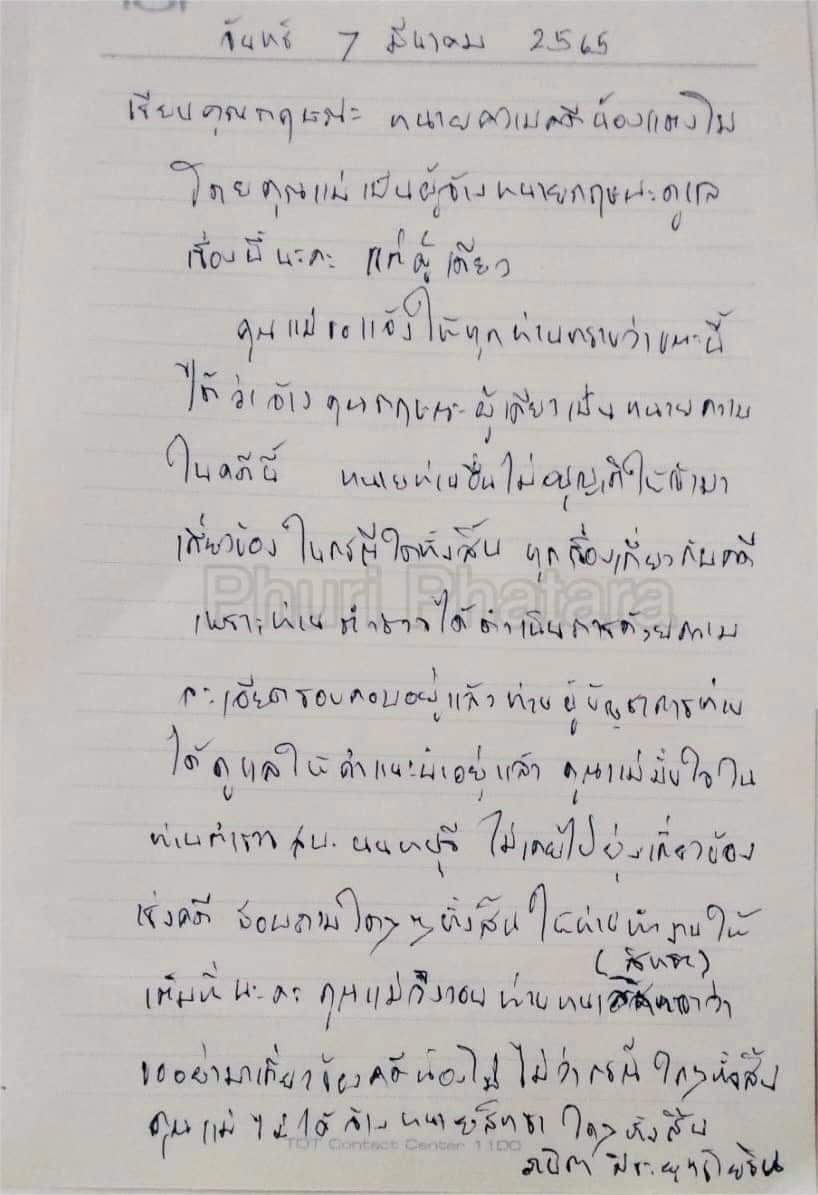 จันทร์ 7 มีนาคม 2565
เรียนคุณกฤษณะ ทนายความคดีน้องแตงโม
โดยคุณแม่เป็นผู้จ้างทนายกฤษณะดูแล
เรื่องนี้นะคะ แต่ผู้เดียว
คุณแม่ขอแจ้งให้ทุกท่านทราบว่าขณะนี้
ได้ว่าจ้างคุณกฤษณะผู้เดียวเป็นทนายความ
ในคดีนี้ ทนายท่านอื่นไม่อนุญาติให้เข้ามา
เกี่ยวข้องในกรณีใดทั้งสิ้น ทุกเรื่องเกี่ยวกับคดี
Phuri Phatara
เพราะท่านตำรวจได้ดำเนินการด้วยความ
ละเอียดรอบคอบอยู่แล้วท่านผู้บัญชาการท่าน
ได้ดูแลให้คำแนะนำอยู่แล้ว คุณแม่มั่นใจใน
ท่านตำรวจ สน. นนทบุรี ไม่เคยไปยุ่งเกี่ยวข้อง
เร่งคดี สอบถามใดๆ ทั้งสิ้น ให้ท่านทำงานให้
(สิทธา)
เต็มที่นะคะ คุณแม่จึงวอนท่านทนายว่า
ขออย่ามาเกี่ยวข้องคดีน้องโม ไม่ว่ากรณีใดๆทั้งสิ้น
คุณแม่ไม่ได้จ้างทนายสิทธาใดๆทั้งสิ้น
TOT Contact Center 1100
ภนิดา ศิระยุทธโยธิน